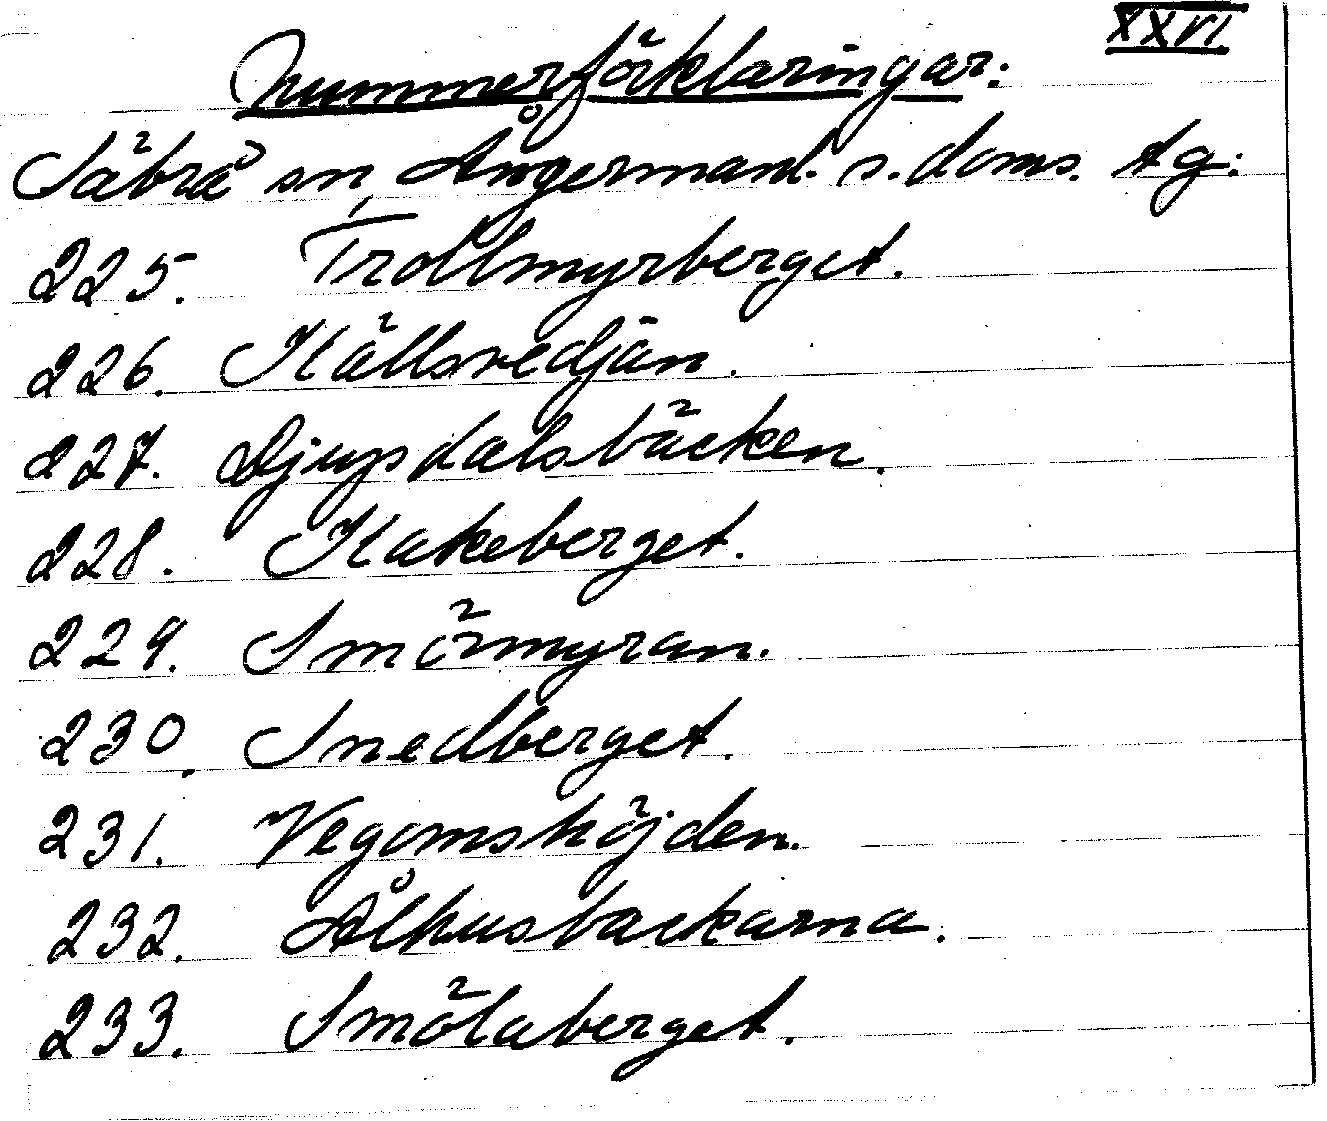 XXVI
Nummerförklaringar:
Säbrå sn, Ångermanl. s. doms. Ag:
225. Trollmyrberget.
226. Källsvedjan.
227. Djupdalsbäcken.
228. Kakeberget.
229. Smörmyran.
230. Snedberget.
231. Vegomshöjden.
232. Ålhusbackarna.
233. Smölaberget.